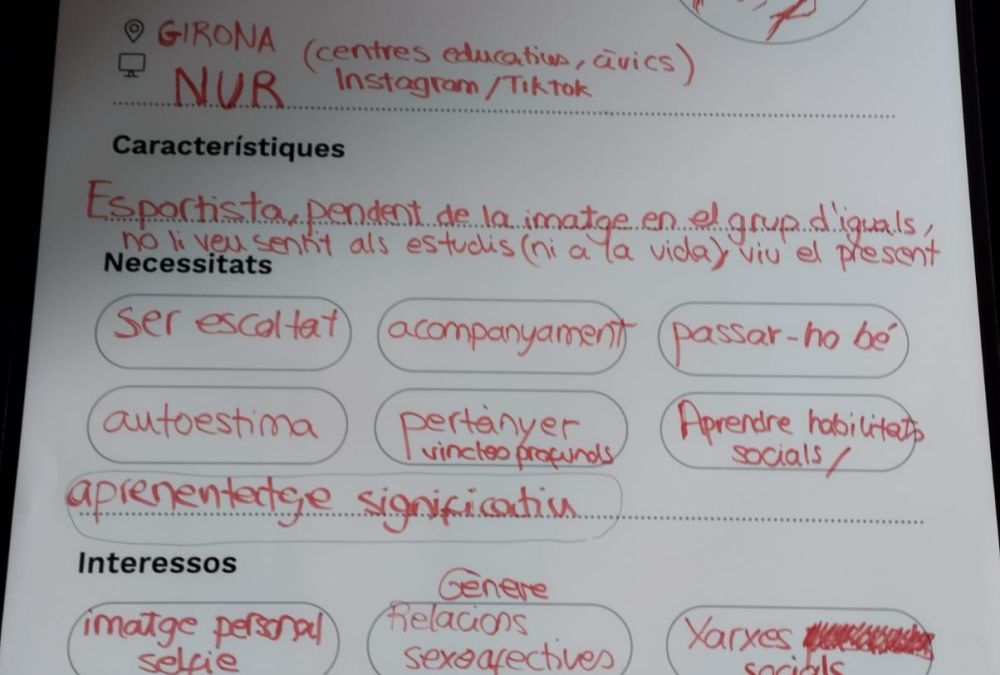 GIRONA (centres educatius, cívics)
NUR Instagram/Tiktok
Característiques
Esportista, pendent de la imatge en el grup d'iguals,
no li veu sentit als estudis (ni a la vida), viu el present
Necessitats
ser escoltat
acompanyament
passar-ho bé
autoestima
pertànyer
vincles profunds
Aprendre habilitats
socials/
aprenentatge significatiu
Interessos
imatge personal
selfie
Gènere
Relacions
sexoafectives
Xarxes
socials